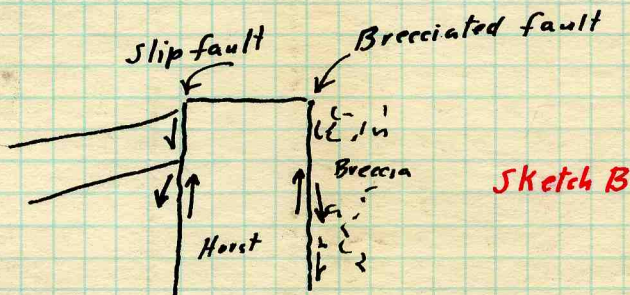 Slip fault
Brecciated fault
Breccia
Sketch B
Horst